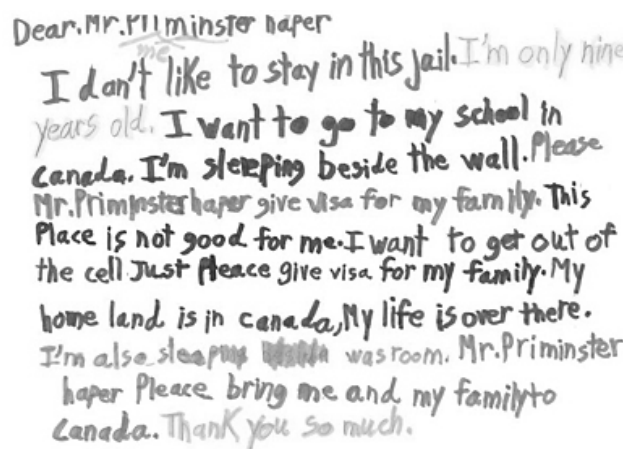 Dear.Mr.Priminster haper
me
I don't like to stay in this jail. I'm only nine
years old. I want to go to my school in
canada. I'm sleeping beside the wall. Please
Mr.Priminster haper give visa for my family. This
Place is not good for me. I want to get out of
the cell Just Pleace give visa for my family. My
home land is in canada, My life is over there.
I'm also sleaping was room. Mr.Priminster
haper Pleace bring me and my family to
Canada. Thank you so much.